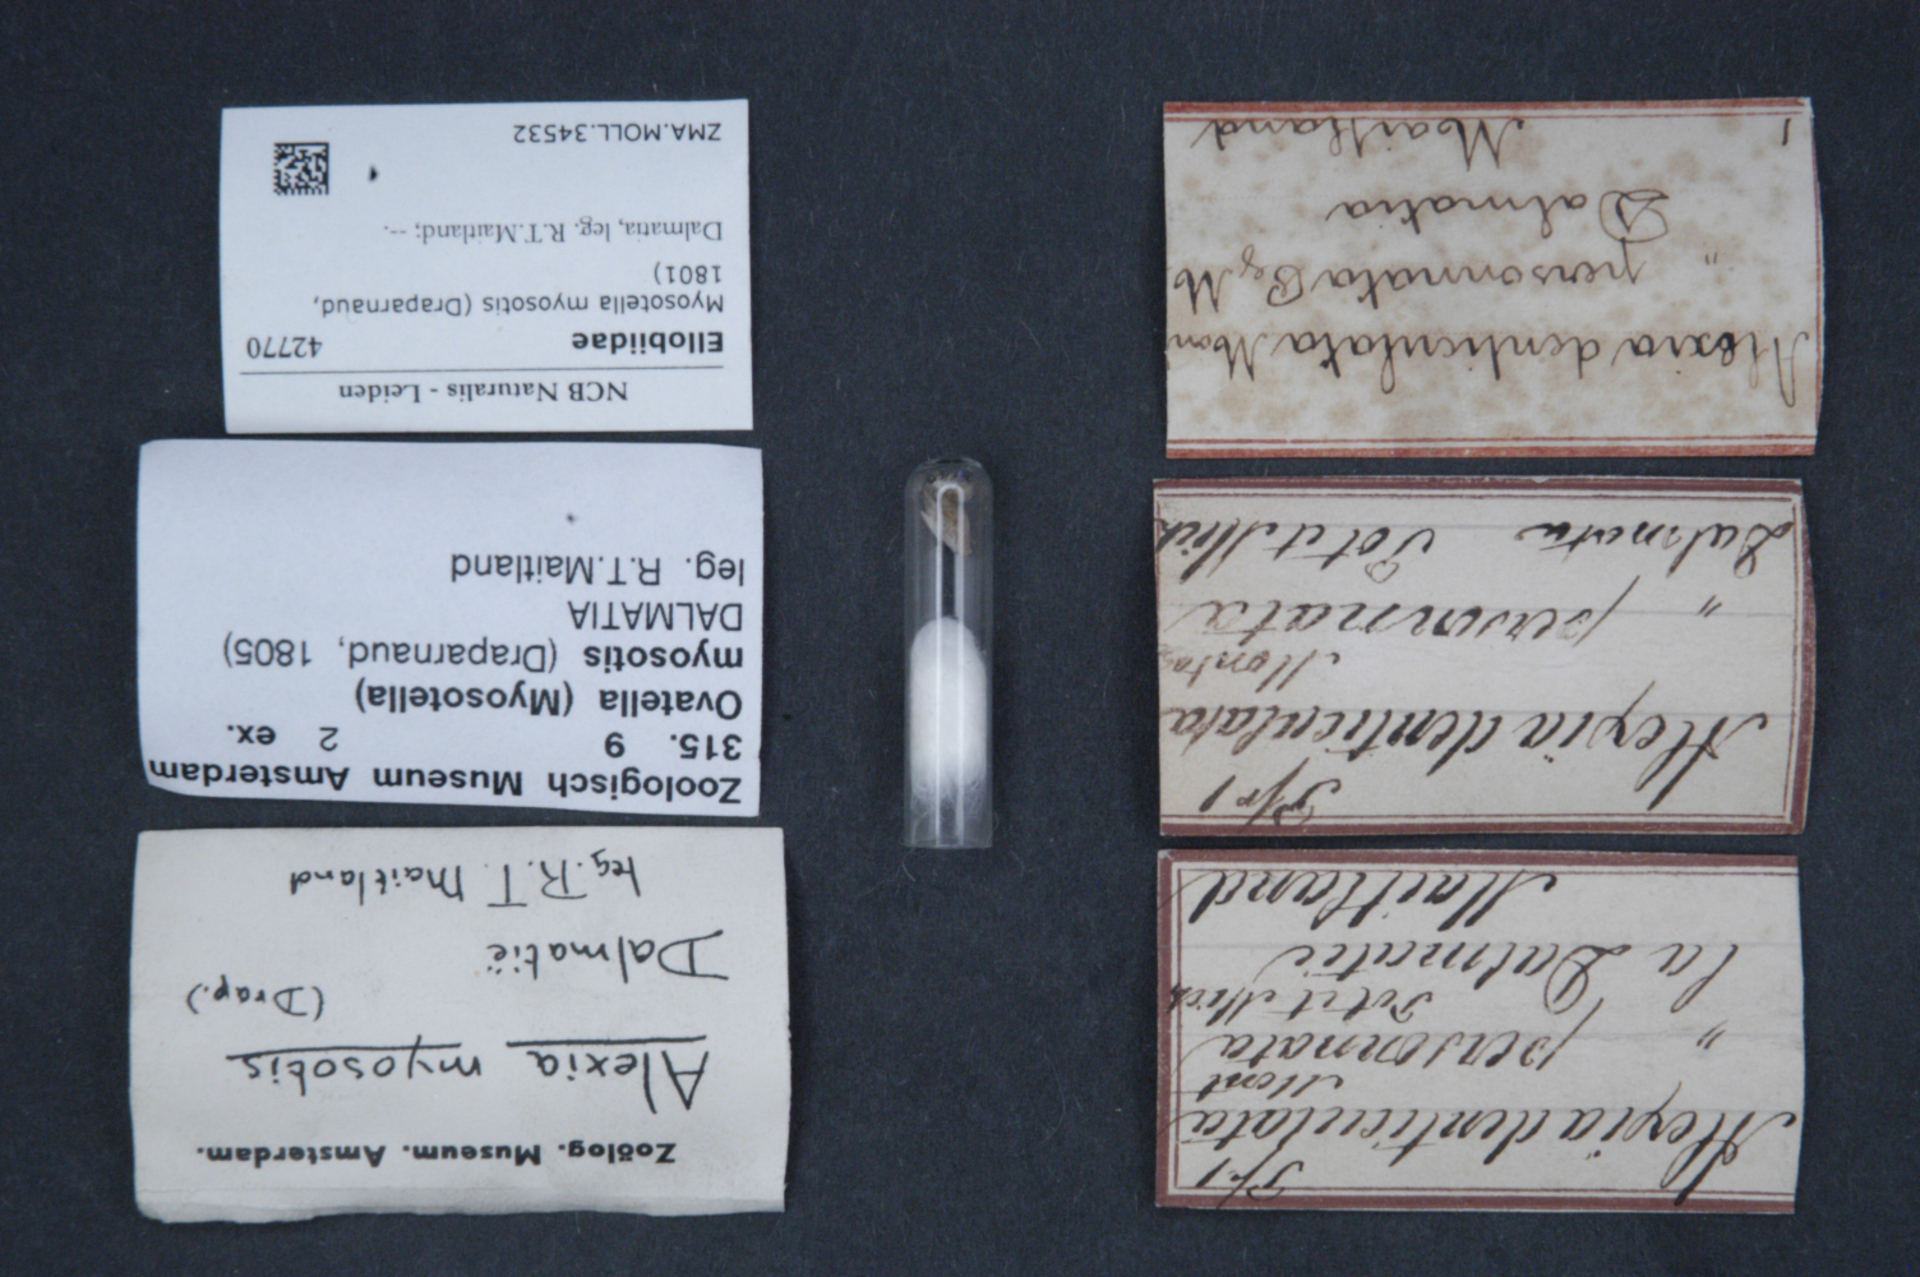 NCB Naturalis - Leiden
Ellobiidae 42770
Myosotella myosotis (Draparnaud,
1801)
Dalmatia, leg. R.T.Maitland; --.
ZMA.MOLL.34532
Zoologisch Museum Amsterdam
315. 9 2 ex.
Ovatella (Myosotella)
myosotis (Draparnaud, 1805)
DALMATIA
leg. R.T.Maitland
Zoölog. Museum. Amsterdam.
Alexia myosotis
(Drap.)
Dalmatië
leg. R.T. Maitland
Alexia denticulata Mon
" personnata
Dalmatia
1 Maitland
Pfr
Alexia denticulata
Montag
" personnata
Dalmatia Pot et Mich
Pfr
Alexia denticulata
Mont
" personnata
Pot et Mich
la Dalmatie
Maitland